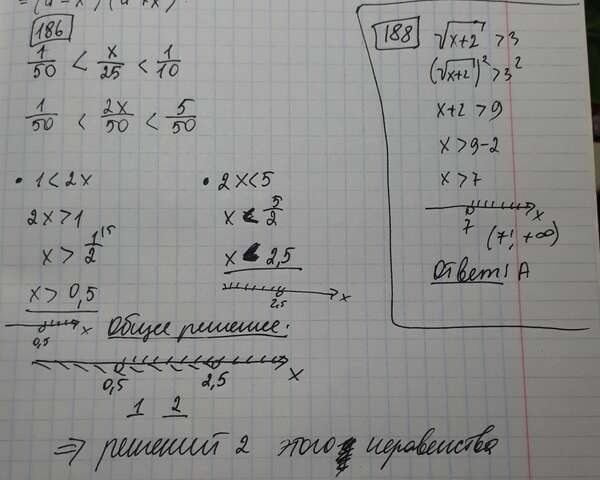 =(a-x)(a+x)
186
1/50 < x/25 < 1/10
1/50 < 2x/50 < 5/50
• 1<2x
2x>1
x > 1/2
x > 0,5
0,5 x
• 2x<5
x < 5/2
x < 2,5
2,5 x
Общее решение:
0,5 2,5 x
1 2
⇒ решений 2 этого неравенства
188
√x+2 >3
(√x+2)² >3²
x+2 >9
x >9-2
x >7
7 x
(7; +∞)
Ответ: А